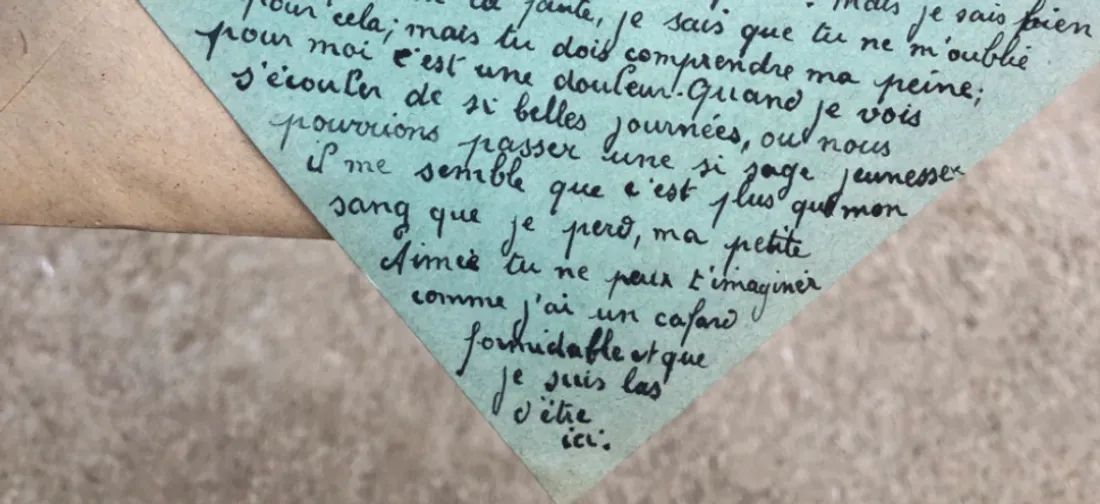 la jante, je sais que tu ne m'oublie
mais je sais bien
pour cela; mais tu dois comprendre ma peine;
pour moi c'est une douleur. Quand je vois
s'écouler de si belles journées, ou nous
pourrions passer une si sage jeunesse
il me semble que c'est plus que mon
sang que je perd, ma petite
Aimée tu ne peux t'imaginer
comme j'ai un cafard
formidable et que
je suis las
d'être
ici.